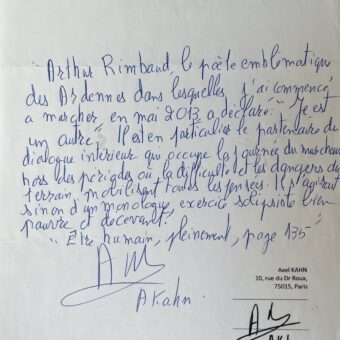 "Arthur Rimbaud le poète emblématique
des Ardennes dans lesquelles j'ai commencé
a marcher en mai 2013 a déclaré " Je est
un autre". Il est en particulier le partenaire du
dialogue intérieur qui occupe la journée du marcheur
hors des périodes où la difficulté et les dangers du
terrain mobilisent toutes les pensées. Il s'agirait
sinon d'un monologue, exercice solipsiste bien
pauvre et décevant."
"Être humain, pleinement, page 135"
A Kahn.
Axel KAHN
10, rue du Dr Roux,
75015, Paris